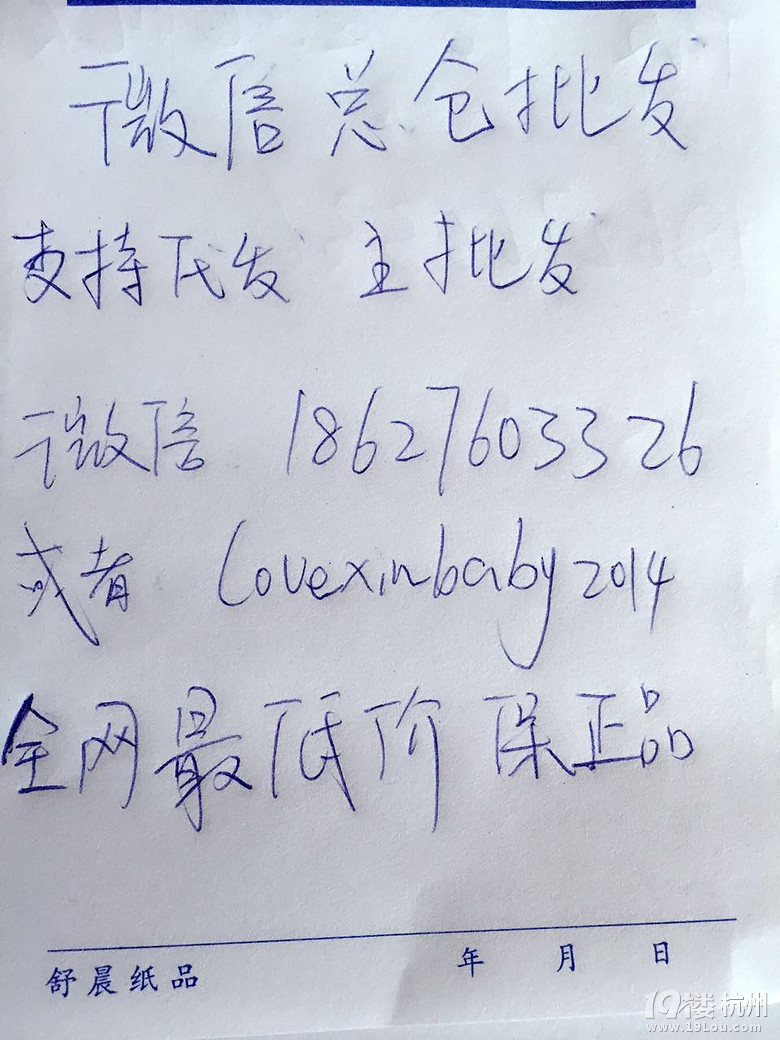 微信总仓批发
支持代发 主批发
微信 18627603326
或者 lovexinbaby2014
全网最低价 保正品
舒晨纸品 年 月 日
19楼杭州
www.19lou.com